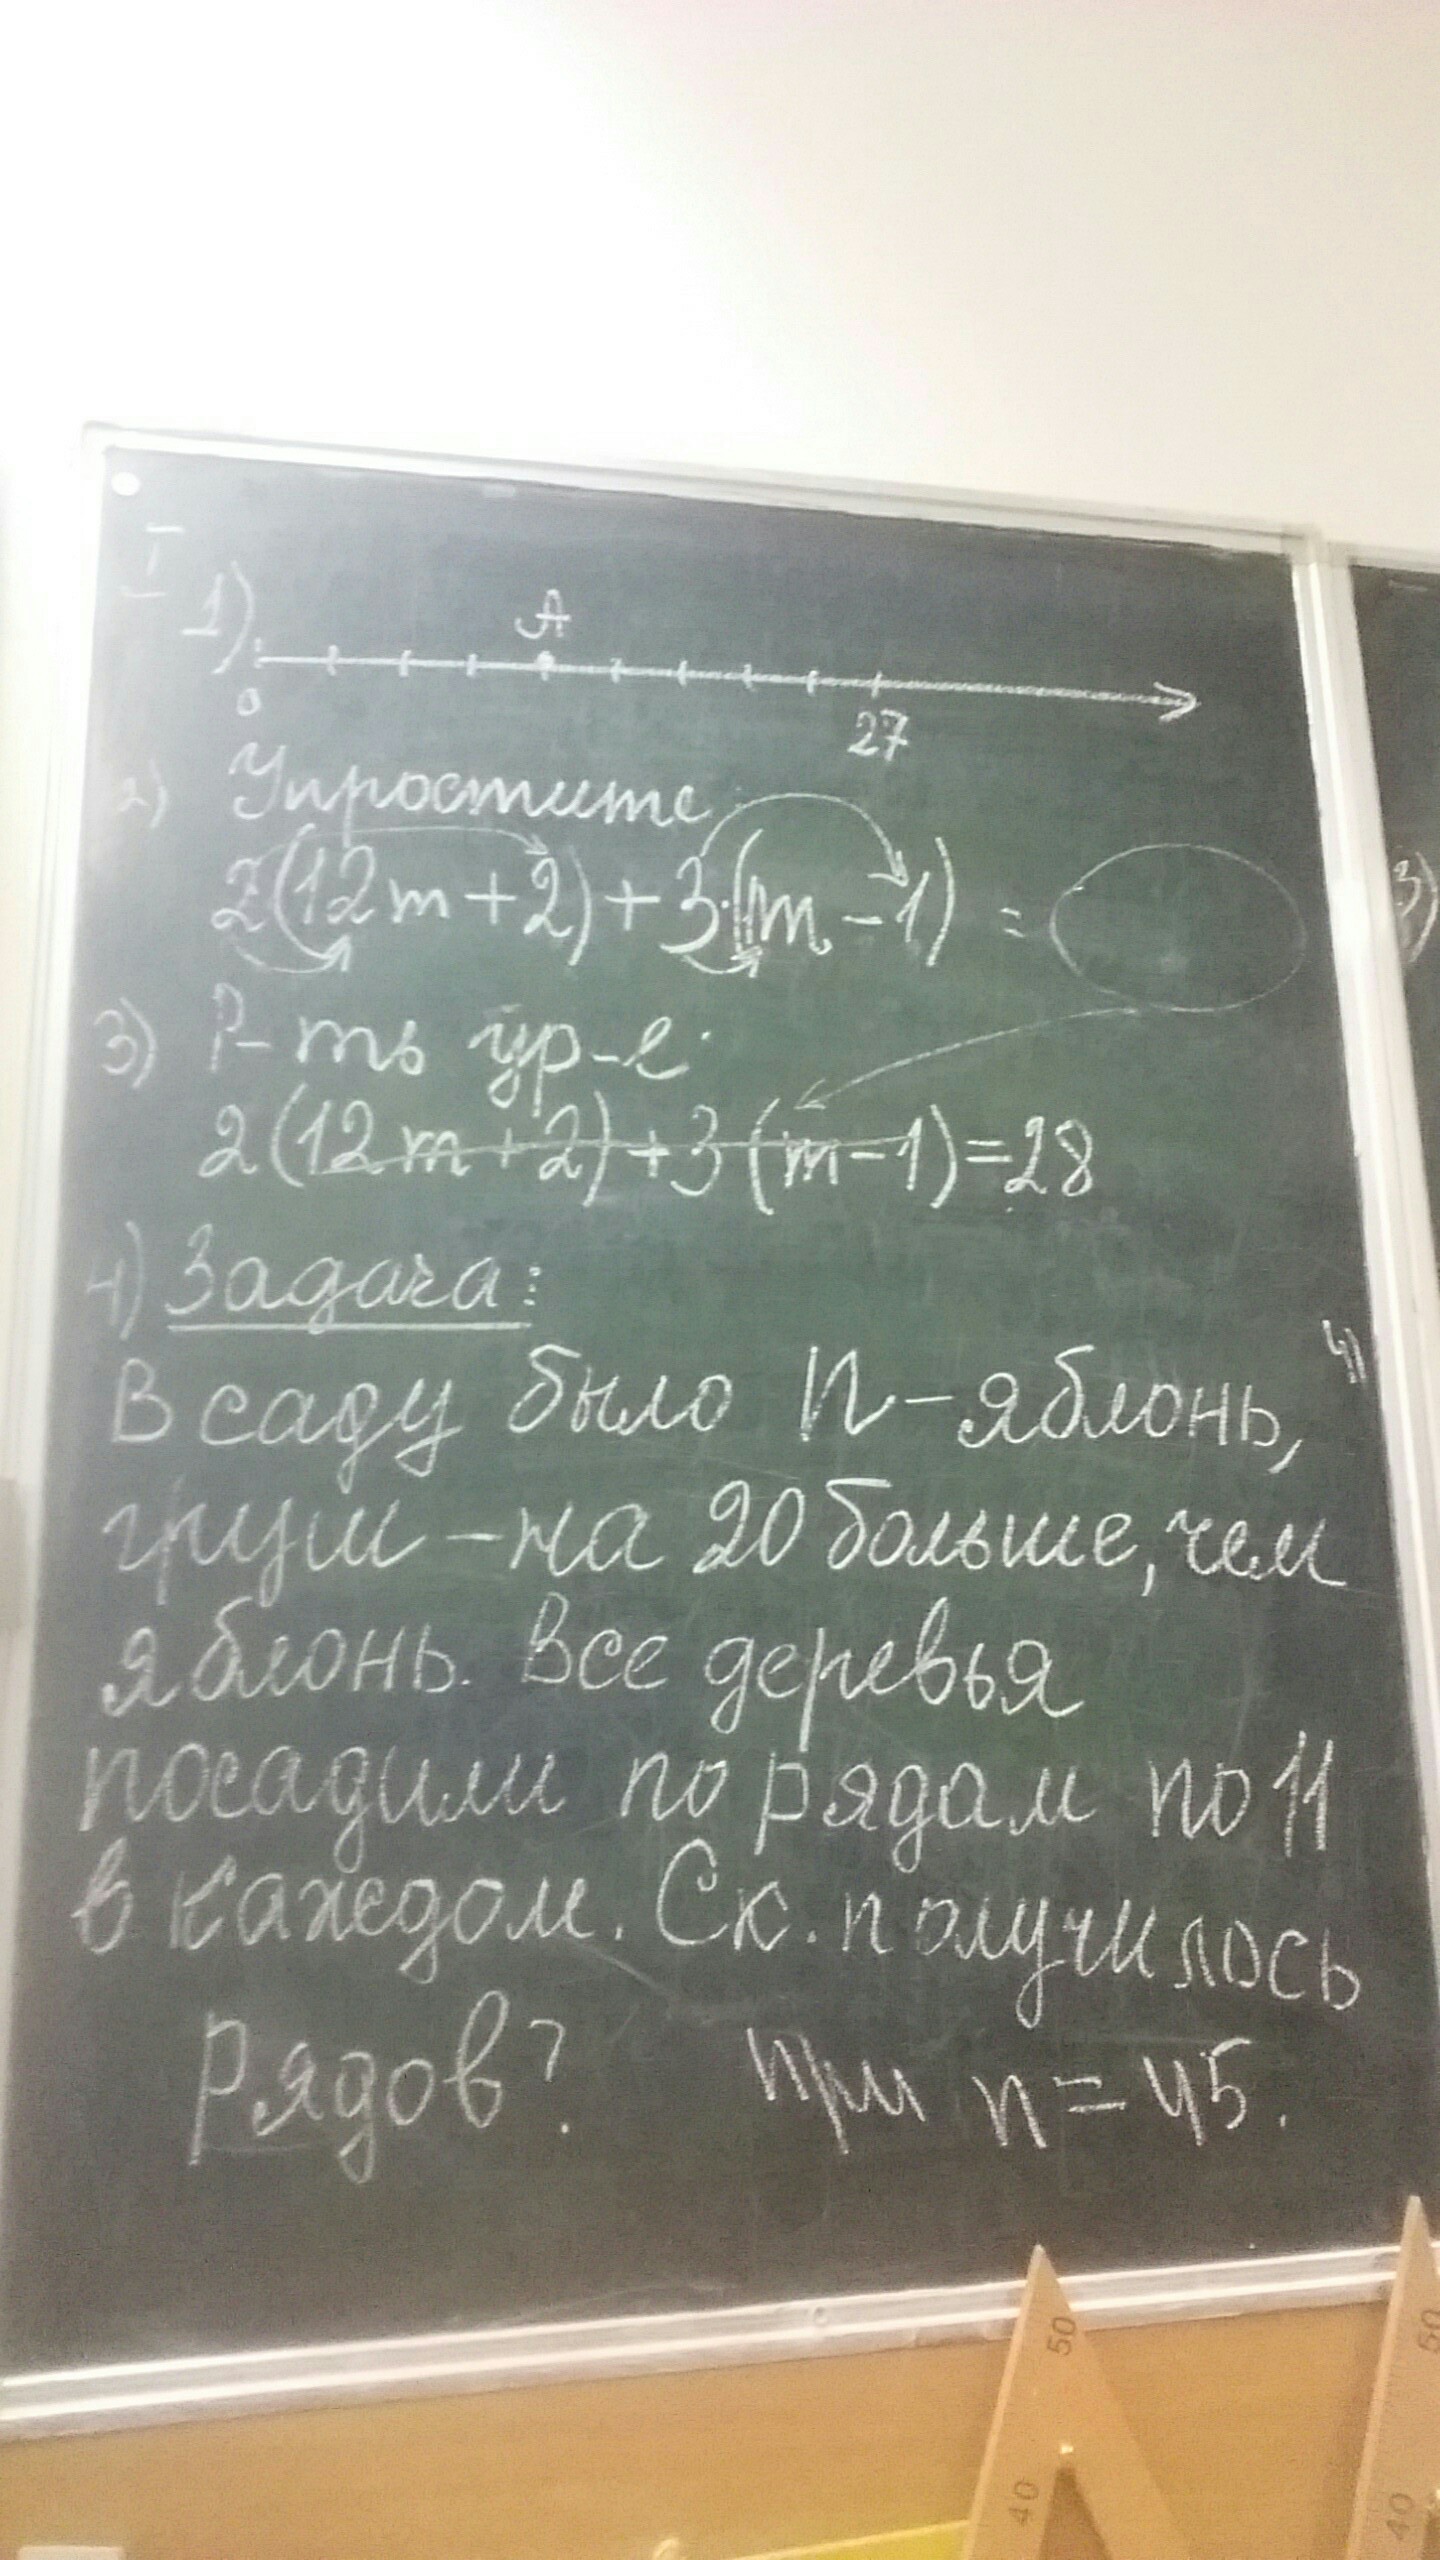 I
1)
A
0
27
2) Упростите
2(12m+2)+3·(m-1) =
3) Р-ть ур-е
2(12m+2)+3(m-1)=28
4) Задача:
В саду было n-яблонь,
груш-на 20 больше, чем
яблонь. Все деревья
посадили по рядам по 11
в каждом. Ск. получилось
рядов? при n=45.
3)
4)
50
40
50
40